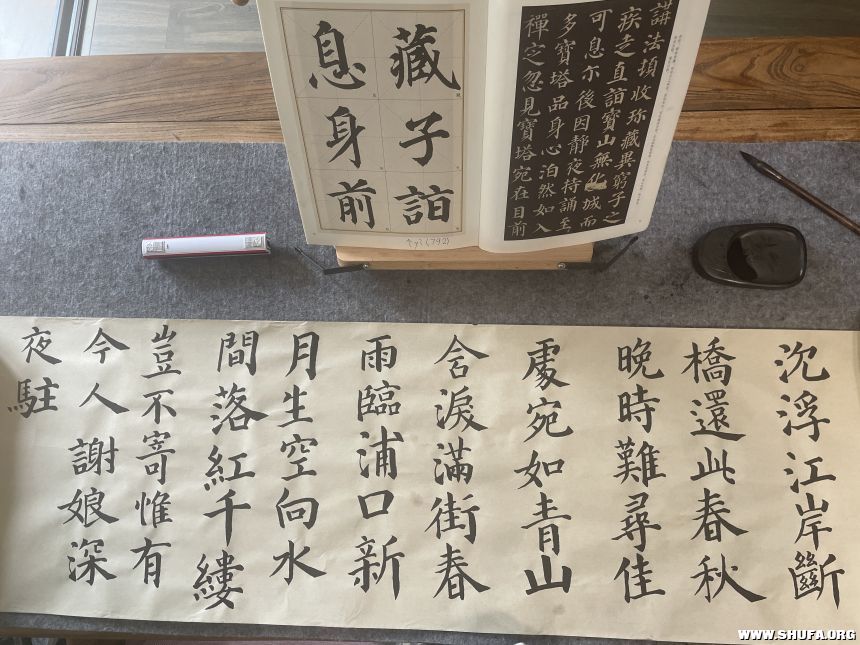 講法頓收珎藏異窮子之
疾走直詣寶山無化城而
可息尒後因靜夜持誦至
多寶塔品身心泊然如入
禪定忽見寶塔宛在目前
藏子詣
息身前
沉浮江岸斷
橋還此春秋
晚時難尋佳
處宛如青山
含淚滿街春
雨臨浦口新
月生空向水
間落紅千縷
豈不寄惟有
今人謝娘深
夜駐
WWW.SHUFA.ORG